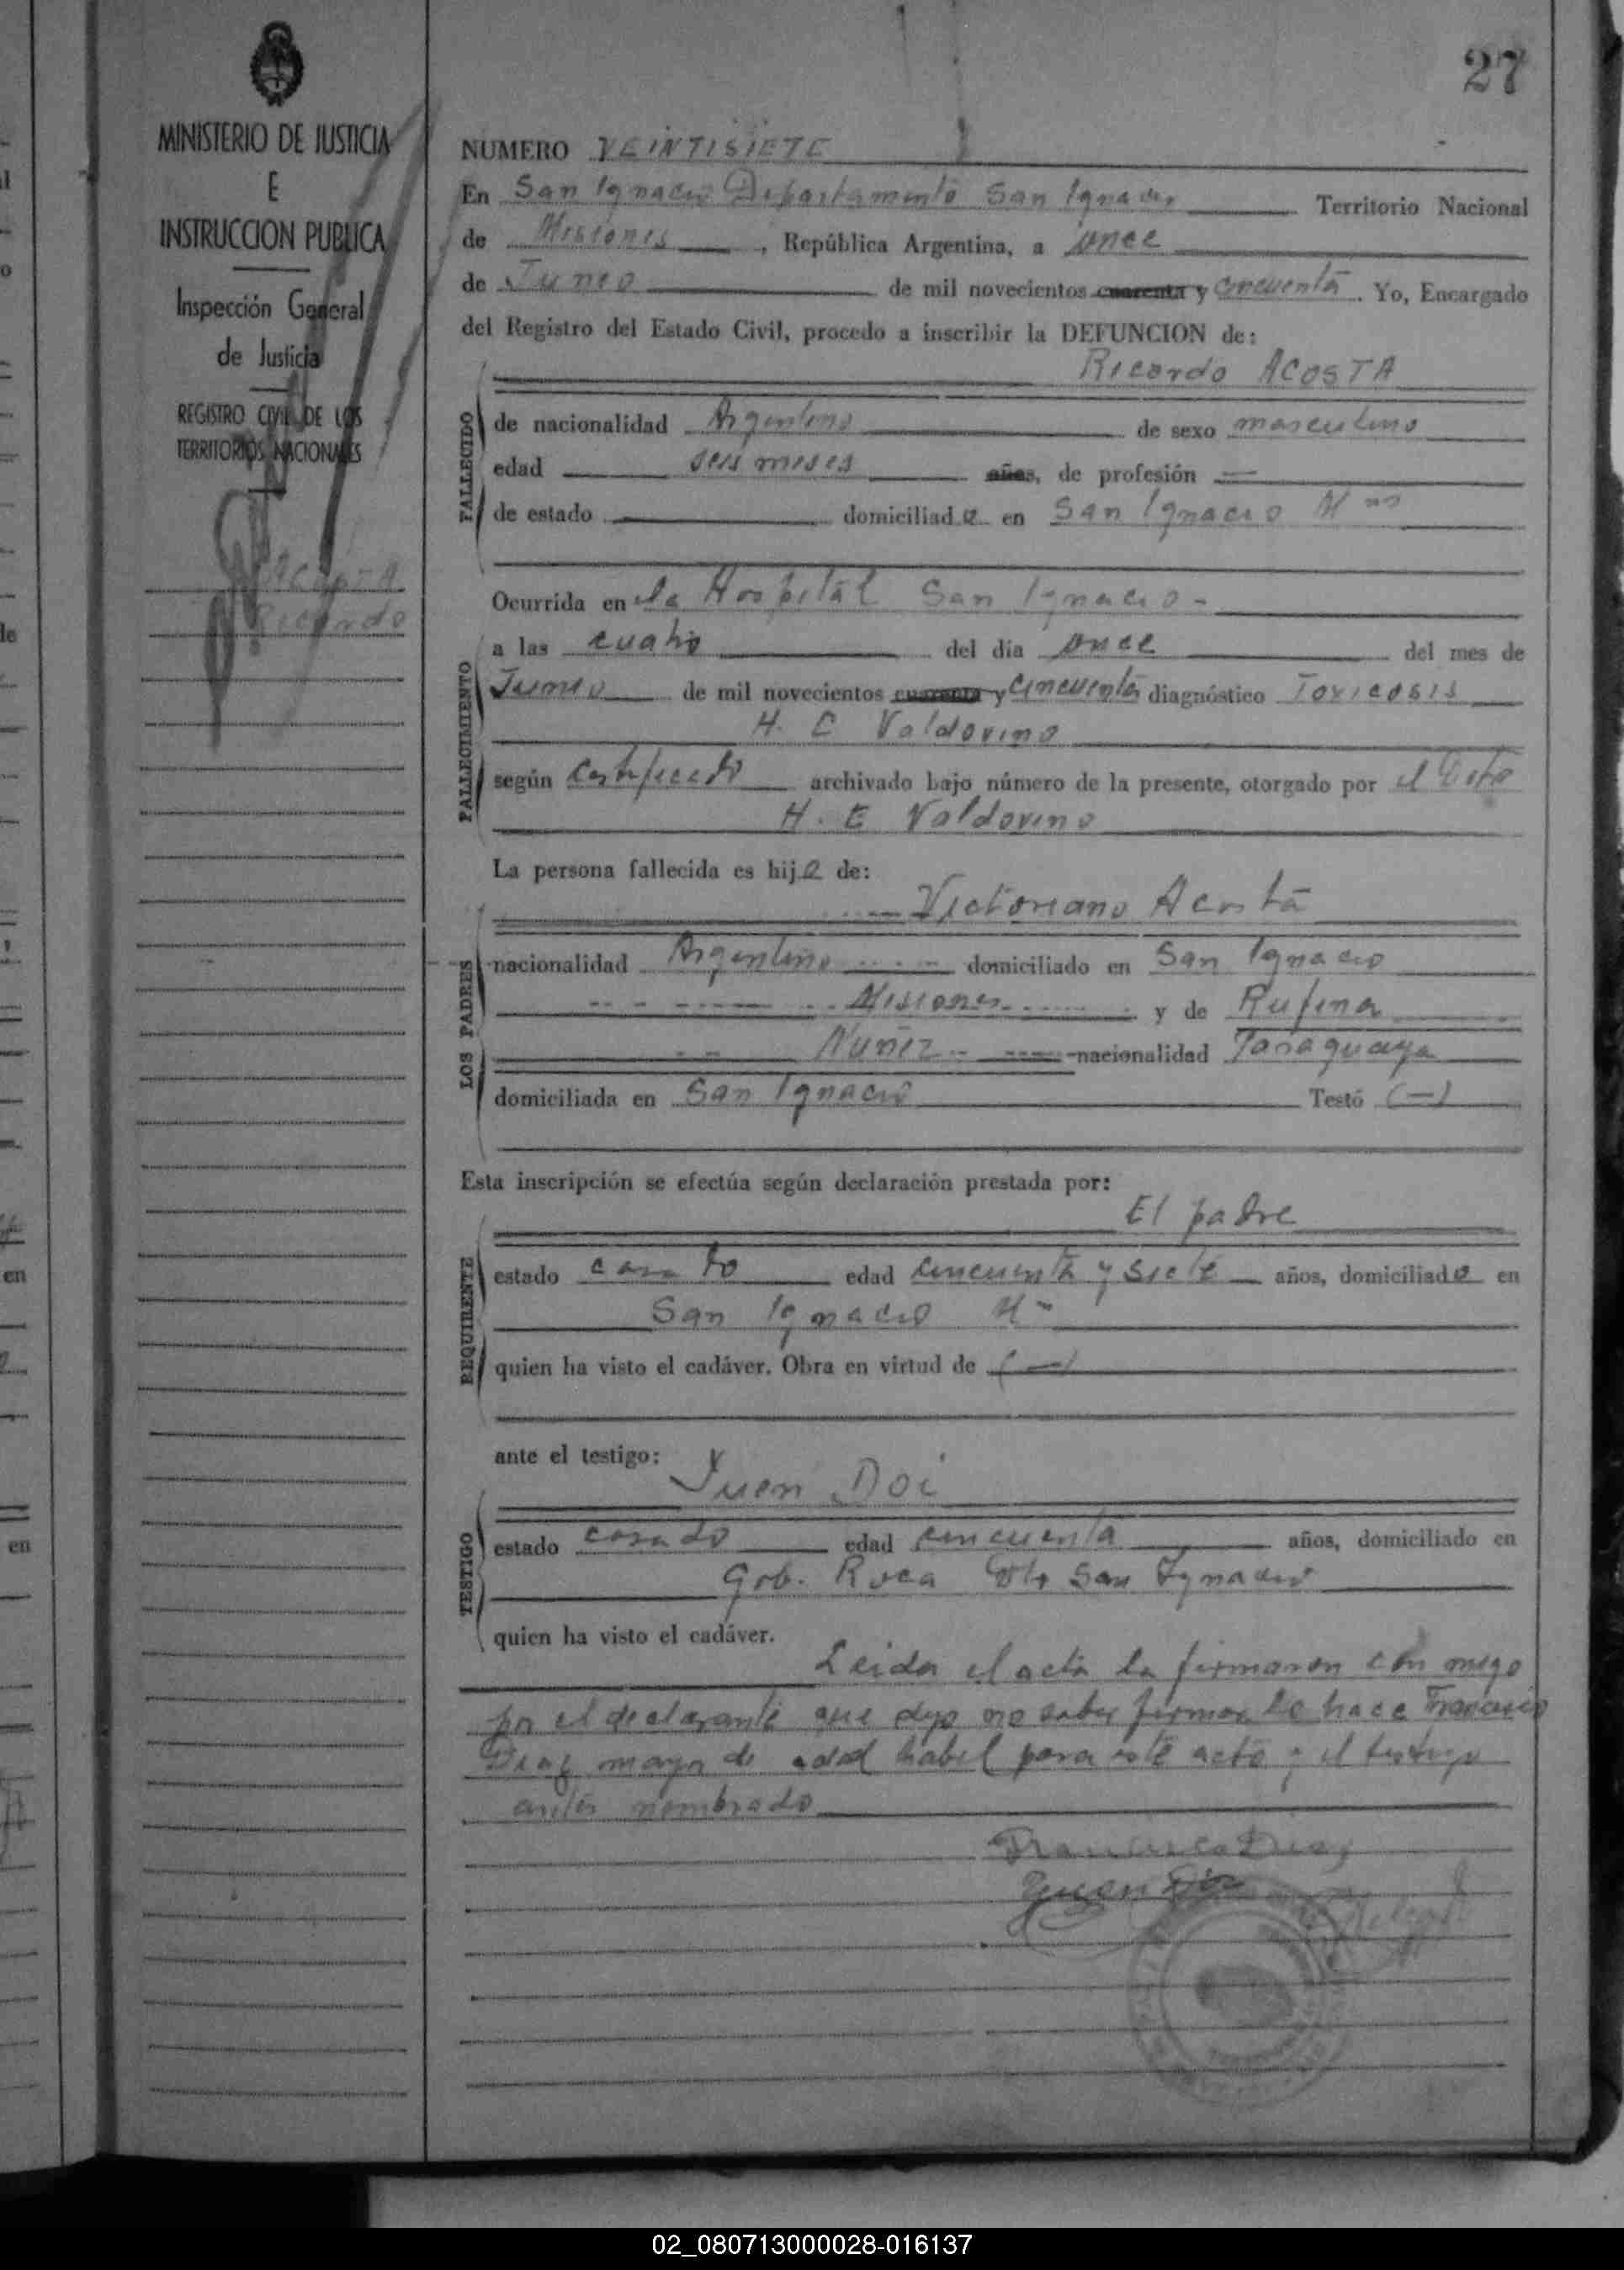 27
MINISTERIO DE JUSTICIA
E
INSTRUCCION PUBLICA
Inspección General
de Justicia
REGISTRO CIVIL DE LOS
TERRITORIOS NACIONALES
ACOSTA
Ricardo
NUMERO VEINTISIETE
En San Ignacio Departamento San Ignacio Territorio Nacional
de Misiones, República Argentina, a once
de Junio de mil novecientos cuarenta y cincuenta. Yo, Encargado
del Registro del Estado Civil, procedo a inscribir la DEFUNCION de:
Ricardo ACOSTA
FALLECIDO
de nacionalidad Argentino de sexo masculino
edad seis meses años, de profesión —
de estado domiciliado en San Ignacio Mnes
Ocurrida en la Hospital San Ignacio-
FALLECIMIENTO
a las cuatro del día once del mes de
Junio de mil novecientos cuarenta y cincuenta diagnóstico Toxicosis
H. E Valdovino
según Certificado archivado bajo número de la presente, otorgado por el
H. E Valdovino
La persona fallecida es hijo de:
LOS PADRES
Victoriano Acosta
nacionalidad Argentino domiciliado en San Ignacio
Misiones y de Rufina
Nuñez nacionalidad Paraguaya
domiciliada en San Ignacio Testó (—)
Esta inscripción se efectúa según declaración prestada por:
REQUIRENTE
El padre
estado casado edad cincuenta y siete años, domiciliado en
San Ignacio Mn
quien ha visto el cadáver. Obra en virtud de (—)
ante el testigo:
TESTIGO
Juan Doi
estado casado edad cincuenta años, domiciliado en
Gob. Roca Dto San Ignacio
quien ha visto el cadáver.
Leida el acta la firmaron con migo
por el declarante que dijo no saber firmar lo hace Francisco
Diaz mayor de edad habil para este acto y el testigo
antes nombrado
Francisco Diaz
Juan Doi
02_080713000028-016137